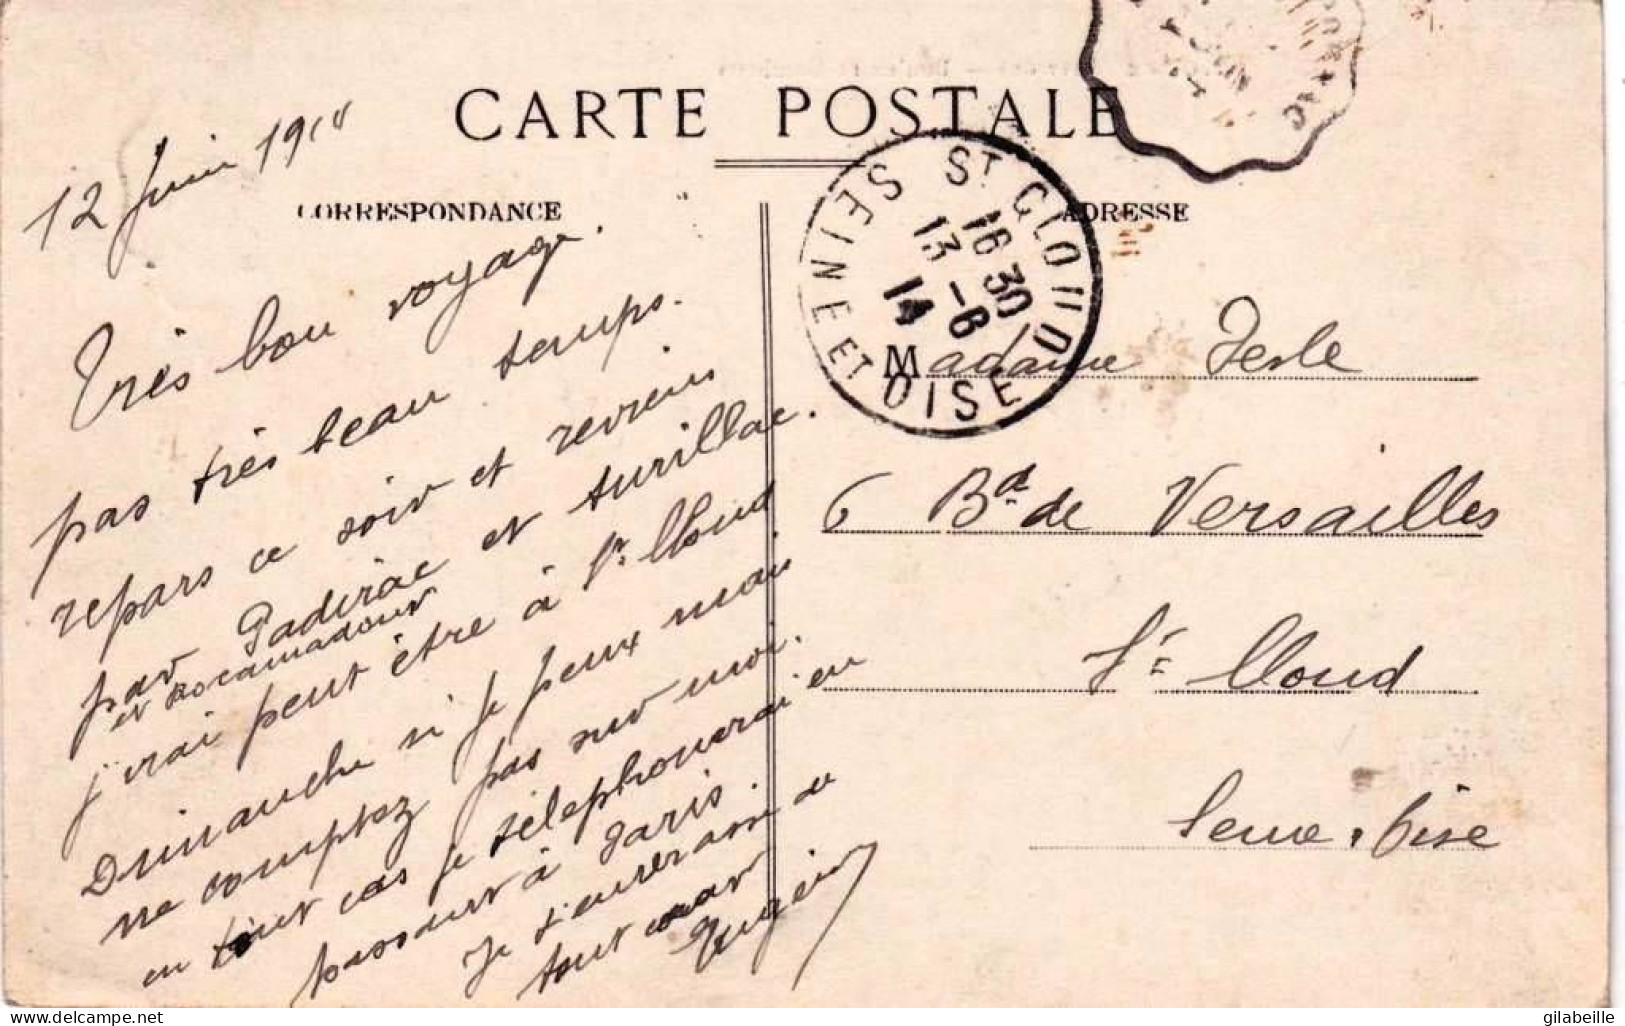 CARTE POSTALE
CORRESPONDANCE
ADRESSE
12 Juin 1914
Très bon voyage.
pas très beau temps.
repars ce soir et reviens
par Padirac et Aurillac.
et Rocamadour
j'irai peut être à St Cloud
Dimanche si je peux mais
ne comptez pas sur moi.
en tout cas je téléphonerai en
passant à Paris.
Je t'embrasse de
tout cœur
St CLOUD
16 30
13 -6
14
SEINE ET OISE
Madame
6 Bd de Versailles
St Cloud
Seine & Oise
delcampe.net
gilabeille